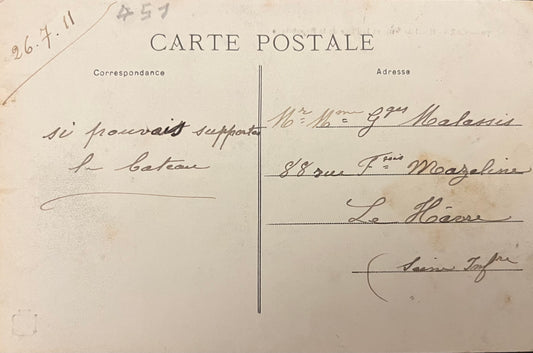 26.7.11
451
CARTE POSTALE
Correspondance
Adresse
si pouvais supporter
le bateau
Mr Mme Gges Malassis
88 rue Fois Mazeline
Le Hâvre
(Seine Infre